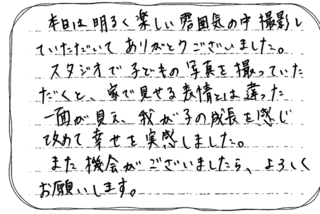 本日は明るく楽しい雰囲気の中撮影し
ていただいてありがとうございました。
スタジオで子どもの写真を撮っていた
だくと、家で見せる表情とは違った
一面が見え、我が子の成長を感じ
改めて幸せを実感しました。
また機会がございましたら、よろしく
お願いします。